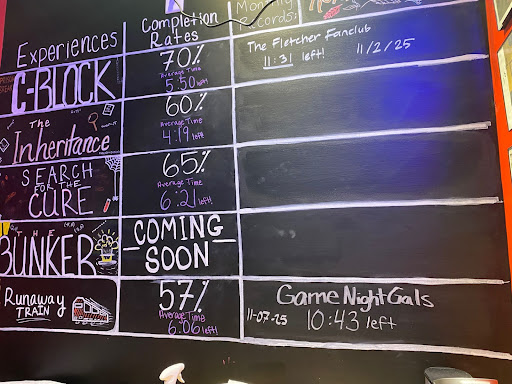 Experiences
Completion
Rates
Monthly
Records:
C-BLOCK
70%
Average Time
5:50 left!
The Fletcher Fanclub
11:31 left! 11/2/25
The
Inheritance
60%
Average Time
4:19 left
SEARCH
FOR THE
CURE
65%
Average Time
6:21 left!
THE
BUNKER
COMING
SOON
Runaway
TRAIN
57%
Average Time
6:06 left!
Game Night Gals
11-07-25 10:43 left